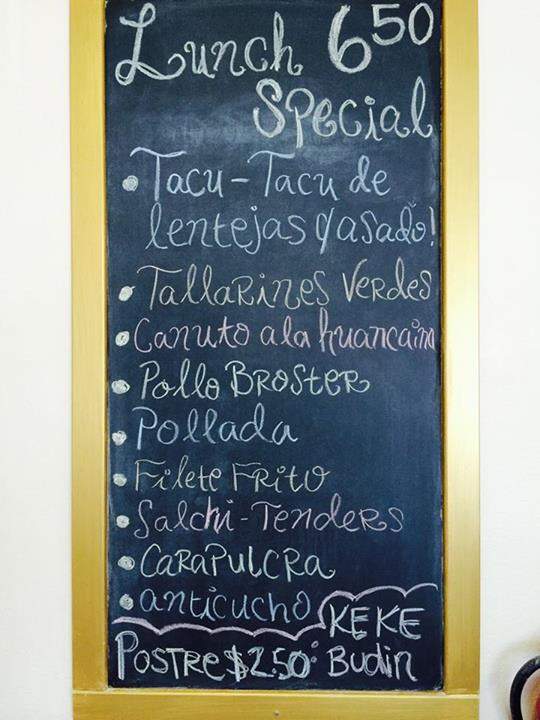 Lunch 6.50
Special
• Tacu-Tacu de
lentejas c/asado!
• Tallarines Verdes
• Canuto a la huancaina
• Pollo Broster
• Pollada
• Filete Frito
• Salchi-Tenders
• Carapulcra
• anticucho
KEKE
Postre $2.50: Budin